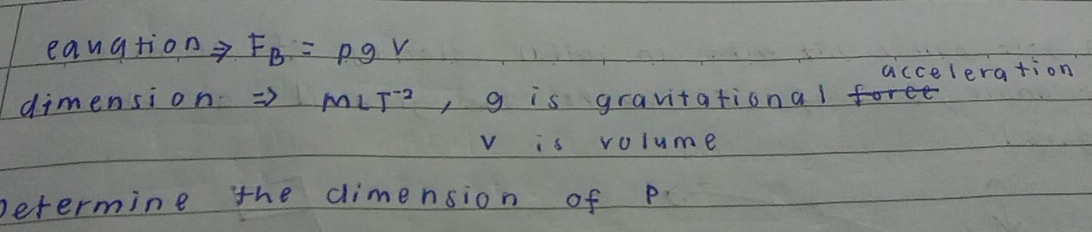 eauation ⇒ F_B = ρ g v
dimension ⇒ MLT⁻², g is gravitational ~~force~~ acceleration
v is volume
Determine the dimension of ρ.